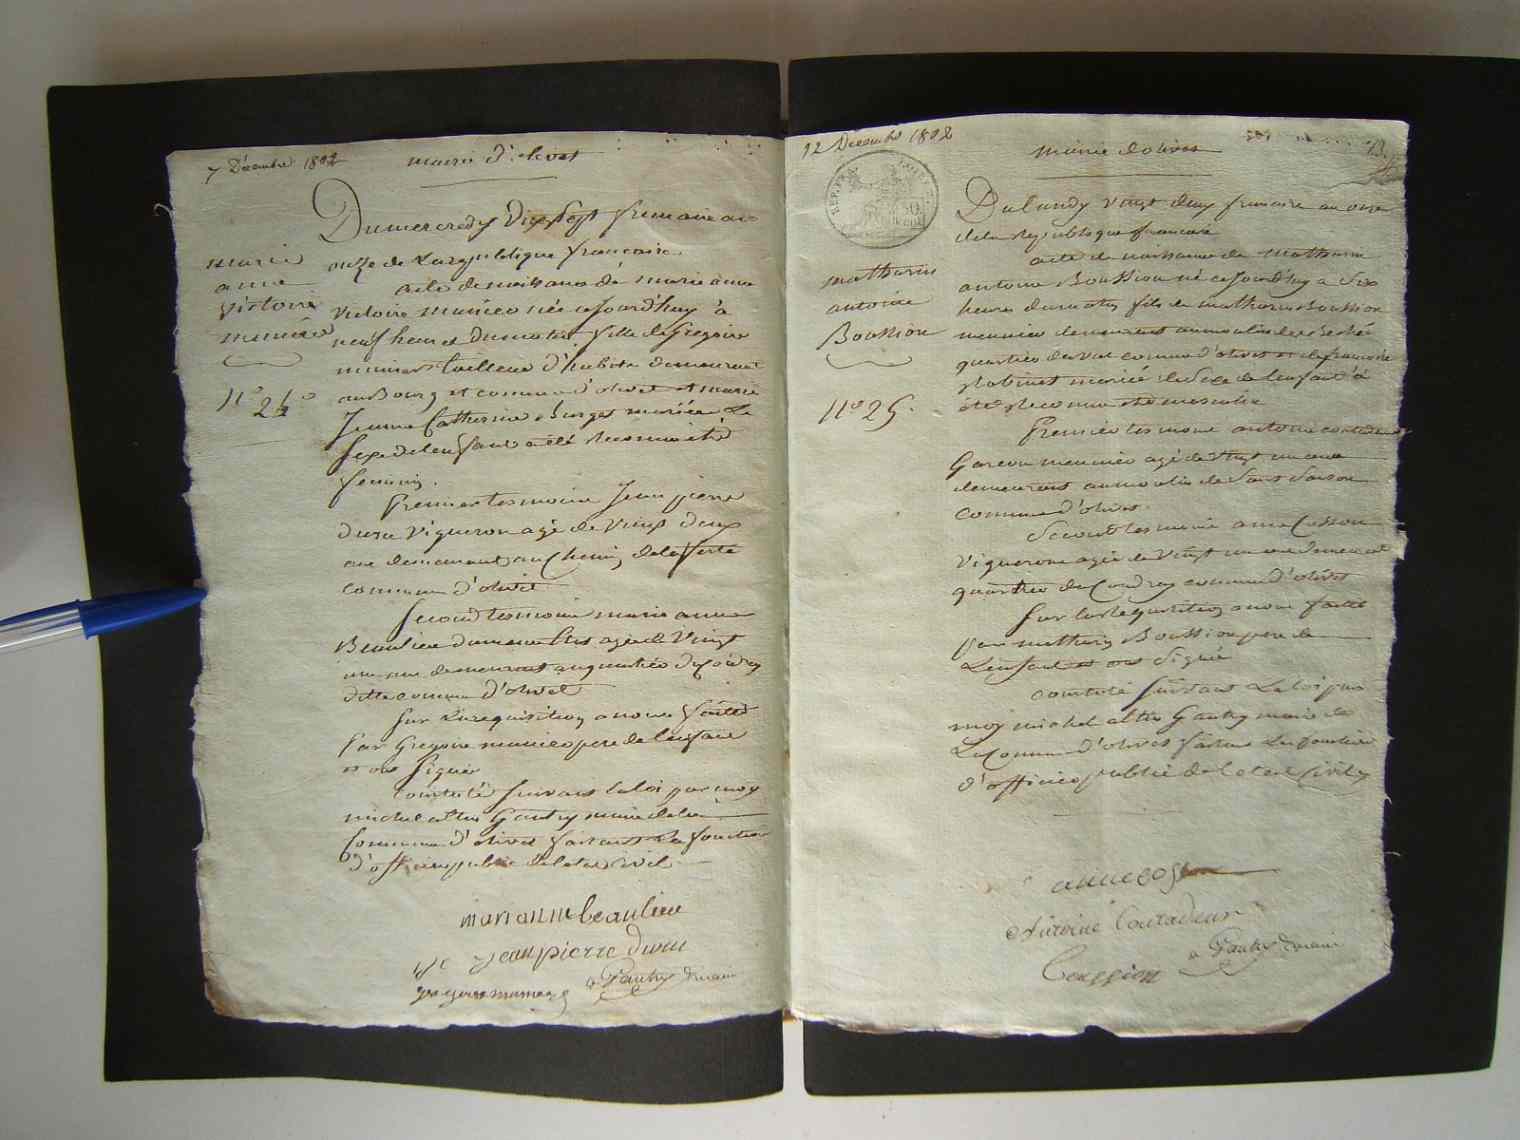 7 Décembre 1802
mairie d'olivet
Du mercredy Dix Sept frimaire an
onze de La republique francaise
marie
anne
victoire
munier
n° 24
acte de naissance de marie anne
victoire munier née cejourdhuy à
neuf heures du matin fille de Gregoire
munier tailleur d'habits demeurant
au Bourg et commune d'olivet et marie
Jeanne Catherine Burget mariée Le
Sexe de lenfant a été reconnu être
feminin.
Premier temoin Jean pierre
vigneron agé de vingt deux
ans demeurant au Chemin de la ferté
commune d'olivet
Second temoin marie anne
Beaulieu agée de vingt
ans demeurant au quartier
commune d'olivet
Sur La requisition a nous faite
Par Gregoire munier pere de lenfant
et ont Signé
constaté suivant la loi par moy
michel altin Gautry maire de la
Commune d'olivet faisant La fonction
d'officier public de letat civil
mari anne beaulieu
jean pierre
Gautry maire
12 Decembre 1802
REP. FRA.
mairie dolivet
13
Du lundy vingt deux frimaire an onze
de la republique francaise
mathurin
antoine
Boussion
n° 25.
acte de naissance de mathurin
antoine Boussion né cejourdhuy a Six
heures du matin fils de mathurin Boussion
meunier demeurant au moulin de
quartier du val commune d'olivet et de francoise
Robinet mariée le Sexe de lenfant a
été reconnu etre masculin
Premier temoin antoine contadeur
Garcon meunier agé de vingt un ans
demeurant au moulin de Saint Samson
commune d'olivet.
Second temoin anne Cosson
vigneronne agée de vingt un ans demeurant
quartier du Coudray commune d'olivet
Sur La requisition a nous faite
par mathurin Boussion pere de
Lenfant et ont Signé
constaté suivant La loi par
moy michel altin Gautry maire de
La Commune d'olivet faisant La fonction
d'officier public de letat Civil
anne cosson
Antoine Contadeur
Gautry maire
Boussion